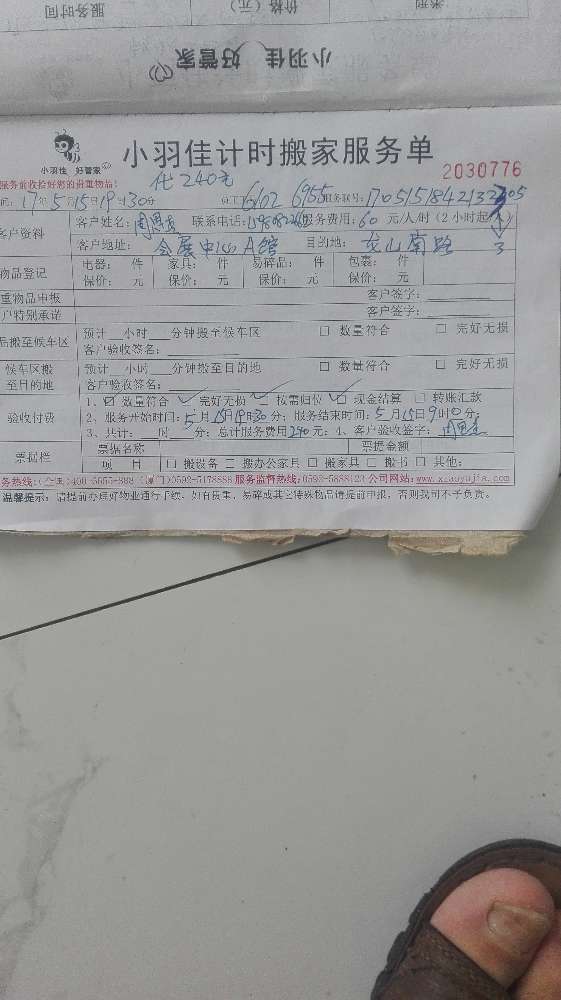 类型
价格（元）
服务时间
小羽佳 好管家
小羽佳 好管家
小羽佳计时搬家服务单
2030776
服务前收拾好您的贵重物品！
代240元
17年5月15日19时30分 6102 6955
客户资料 客户姓名： 联系电话： 服务费用：60元/人/时（2小时起
客户地址：会展中心A馆 目的地：龙山南路 3
物品登记 电器： 件 家具： 件 易碎品： 件 包裹： 件
保价： 元 保价： 元 保价： 元 保价： 元
重物品申报 客户签字：
户特别承诺 客户签字：
后搬至候车区 预计 小时 分钟搬至候车区 □ 数量符合 □ 完好无损
客户验收签名：
候车区搬至目的地 预计 小时 分钟搬至目的地 □ 数量符合 □ 完好无损
客户验收签名：
验收付费 1、☑ 数量符合 ✓ 完好无损 ✓ □ 按需归位 ✓ □ 现金结算 □ 转账汇款
2、服务开始时间：5月15日19时30分；服务结束时间：5月15日9时0分；
3、共计： 时 分；总计服务费用240元；4、客户验收签字：
票据栏 票据名称 票据金额
项 目 □ 搬设备 □ 搬办公家具 □ 搬家具 □ 搬书 □ 其他：
务热线：（全国）400-5555-888（厦门）0592-5178888 服务监督热线：0592-5888123 公司网站：www.xiaoyujia.com
温馨提示：请提前办理好物业通行手续，如有贵重、易碎或其它特殊物品请提前申报，否则我司不予负责。